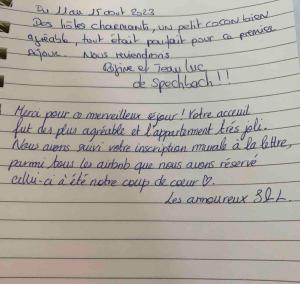 Du 11 au 15 août 2023
Des hôtes charmants, un petit cocon bien
agréable, tout était parfait pour ce premier
séjour. Nous reviendrons
et Jean Luc
de Spechbach !!
Merci pour ce merveilleux séjour ! Votre accueil
fut des plus agréable et l'appartement très joli.
Nous avons suivi votre inscription murale à la lettre,
parmi tous les airbnb que nous avons réservé
celui-ci à été notre coup de coeur ♡.
Les amoureux